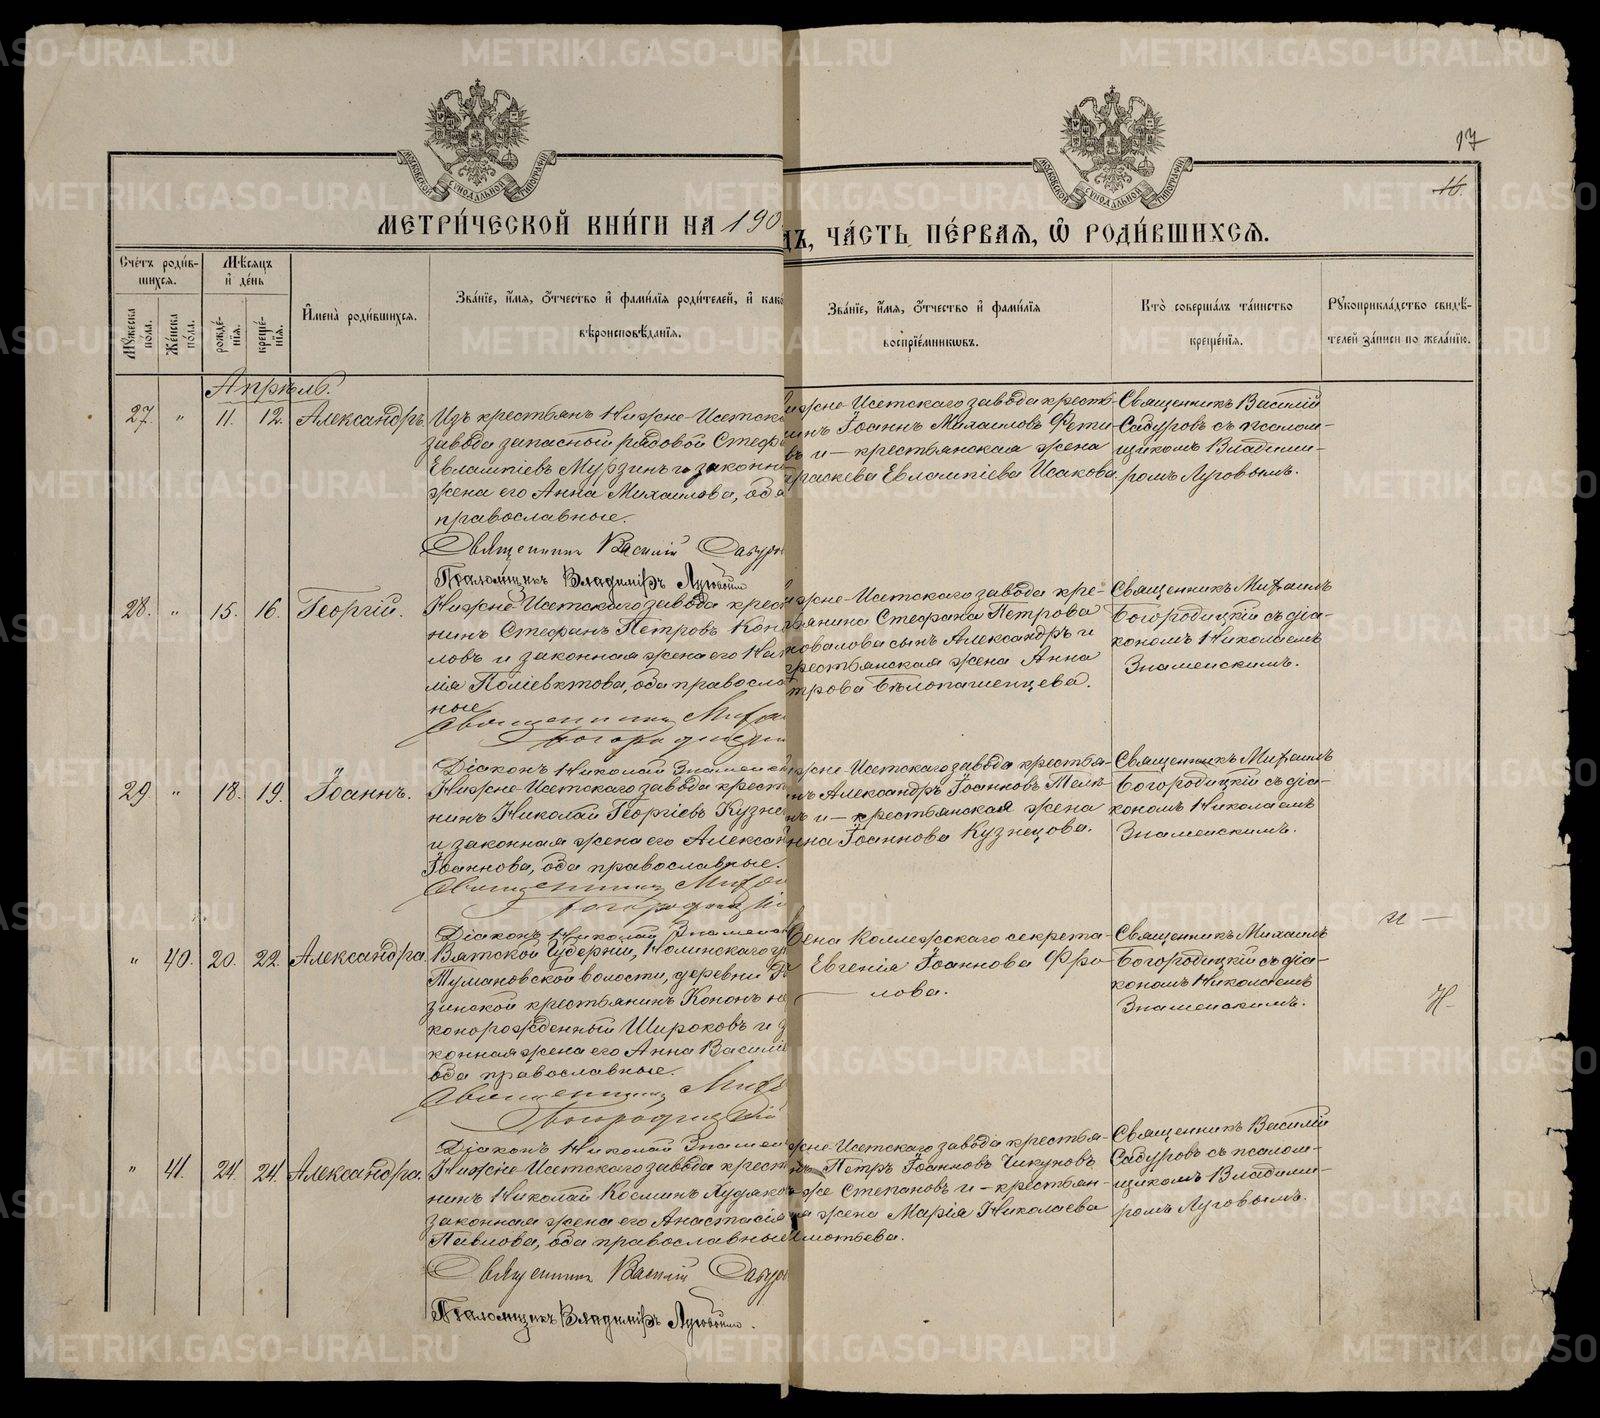 17
16.
МОСКОВСКОЙ СѴНОДАЛЬНОЙ ТИПОГРАФІИ
МОСКОВСКОЙ СѴНОДАЛЬНОЙ ТИПОГРАФІИ
МЕТРИ́ЧЕСКОЙ КНИ́ГИ НА 190
ДЪ, ЧА́СТЬ ПЕ́РВАЯ, Ѽ РОДИ́ВШИХСЯ.
Сче́тъ роди́в-
шихся.
Мѣ́сяцъ
и҆ де́нь
Мꙋ́жеска по́ла.
Же́нска по́ла.
рожде́-нїя.
креще́-нїя.
И҆мена̀ роди́вшихся.
Зва́нїе, и҆́мя, ѻ҆́тчество и҆ фами́лїя роди́телей, и҆ како
вѣроисповѣ́данїя.
Зва́нїе, и҆́мя, ѻ҆́тчество и҆ фами́лїя
воспрїе́мникѡвъ.
Кто̀ соверша́лъ та́инство
креще́нїя.
Рꙋкоприкла́дство свидѣ́-
телей за́писи по жела́нїю.
Апрѣль.
27. " 11. 12. Александръ.
Изъ крестьянъ Нижне-Исетска
завода запасный рядовой Стеф
Евлампіевъ Мурзинъ и законн
жена его Анна Михаилова, оба
православные.
Священникъ Василій Сабур
Псаломщикъ Владиміръ Луговымъ
ижне-Исетскаго завода кресть-
инъ Іоаннъ Михаиловъ Фети-
въ и — крестьянская жена
раскева Евлампіева Исакова.
Священникъ Василій
Сабуровъ съ псалом-
щикомъ Владими-
ромъ Луговымъ.
28. " 15. 16. Георгій.
Нижне-Исетскаго завода крест
нинъ Стефанъ Петровъ Кон
ловъ и законная жена его На
лія Поліевктова, оба правосла
ные.
Священникъ Миха
Богородицкі
Діаконъ Николай Знаменск
ижне-Исетскаго завода кре-
ьянина Стефана Петрова
новалова сынъ Александръ и
рестьянская жена Анна
трова Бѣлопашенцева.
Священникъ Михаилъ
Богородицкій съ діа-
кономъ Николаемъ
Знаменскимъ.
29. " 18. 19. Іоаннъ.
Нижне-Исетскаго завода крест
нинъ Николай Георгіевъ Кузне
и законная жена его Алексан
Іоаннова, оба православные.
Священникъ Миха
Богородицкі
Діаконъ Николай Знаменск
ижне-Исетскаго завода крестья-
нъ Александръ Іоанновъ
нъ и — крестьянская жена
нна Іоаннова Кузнецова.
Священникъ Михаилъ
Богородицкій съ діа-
кономъ Николаемъ
Знаменскимъ.
" 40. 20. 22. Александра.
Вятской Губерніи, Нолинскаго у
Тумановской волости, деревни
зинской крестьянинъ Кононъ не
конорожденный Широковъ и з
конная жена его Анна Василі
оба православные.
Священникъ Миха
Богородицкій
Діаконъ Николай Знамен
Жена Коллежскаго секрета-
Евгенія Іоаннова Фро-
лова.
Священникъ Михаилъ
Богородицкій съ діа-
кономъ Николаемъ
Знаменскимъ.
и —
Н-
" 41. 24. 24. Александра.
Нижне-Исетскаго завода крест
нинъ Николай Косминъ Худяко
законная жена его Анастасія
Павлова, оба православные
Священникъ Василій Сабур
Псаломщикъ Владиміръ Луговымъ.
жне-Исетскаго завода крестья-
нъ Петръ Іоанновъ Чикуновъ
же Степановъ и — крестьян-
ая жена Марія Николаева
мотьева.
Священникъ Василій
Сабуровъ съ псалом-
щикомъ Владими-
ромъ Луговымъ.
METRIKI.GASO-URAL.RU